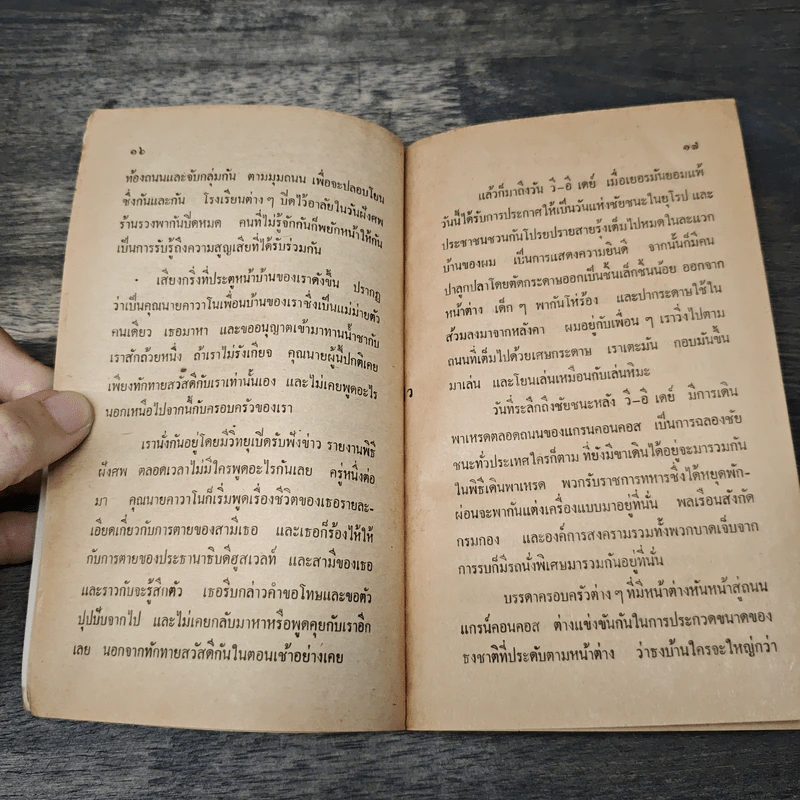 ๑๖
ท้องถนนและจับกลุ่มกัน ตามมุมถนน เพื่อจะปลอบโยน
ซึ่งกันและกัน โรงเรียนต่าง ๆ ปิดไว้อาลัยในวันฝังศพ
ร้านรวงพากันปิดหมด คนที่ไม่รู้จักกันก็พยักหน้าให้กัน
เป็นการรับรู้ถึงความสูญเสียที่ได้รับร่วมกัน
เสียงกริ่งที่ประตูหน้าบ้านของเราดังขึ้น ปรากฏ
ว่าเป็นคุณนายคาวาโนเพื่อนบ้านของเราซึ่งเป็นแม่ม่ายตัว
คนเดียว เธอมาหา และขออนุญาตเข้ามาทานน้ำชากับ
เราสักถ้วยหนึ่ง ถ้าเราไม่รังเกียจ คุณนายผู้นี้ปกติเคย
เพียงทักทายสวัสดีกับเราเท่านั้นเอง และไม่เคยพูดอะไร
นอกเหนือไปจากนี้กับครอบครัวของเรา
เรานั่งกันอยู่โดยมีวิทยุเปิดรับฟังข่าว รายงานพิธี
ฝังศพ ตลอดเวลาไม่มีใครพูดอะไรกันเลย ครู่หนึ่งต่อ
มา คุณนายคาวาโนก็เริ่มพูดเรื่องชีวิตของเธอรายละ-
เอียดเกี่ยวกับการตายของสามีเธอ และเธอก็ร้องไห้ให้
กับการตายของประธานาธิบดีฮูสเวลท์ และสามีของเธอ
และราวกับจะรู้สึกตัว เธอรีบกล่าวคำขอโทษและขอตัว
ปุปปับจากไป และไม่เคยกลับมาหาหรือพูดคุยกับเราอีก
เลย นอกจากทักทายสวัสดีกันในตอนเช้าอย่างเคย
๑๗
แล้วก็มาถึงวัน วี-อี เดย์ เมื่อเยอรมันยอมแพ้
วันนี้ได้รับการประกาศให้เป็นวันแห่งชัยชนะในยุโรป และ
ประชาชนชวนกันโปรยปรายสายรุ้งเต็มไปหมดในละแวก
บ้านของผม เป็นการแสดงความยินดี จากนั้นก็มีคน
ปาลูกปลาโดยตัดกระดาษออกเป็นชิ้นเล็กชิ้นน้อย ออกจาก
หน้าต่าง เด็ก ๆ พากันโห่ร้อง และปากระดาษใช้ใน
ส้วมลงมาจากหลังคา ผมอยู่กับเพื่อน ๆ เราวิ่งไปตาม
ถนนที่เต็มไปด้วยเศษกระดาษ เราเตะมัน กอบมันขึ้น
มาเล่น และโยนเล่นเหมือนกับเล่นหิมะ
วันที่ระลึกถึงชัยชนะหลัง วี-อี เดย์ มีการเดิน
พาเหรดตลอดถนนของแกรนคอนคอส เป็นการฉลองชัย
ชนะทั่วประเทศใครก็ตาม ที่ยังมีขาเดินได้อยู่จะมารวมกัน
ในพิธีเดินพาเหรด พวกรับราชการทหารซึ่งได้หยุดพัก-
ผ่อนจะพากันแต่งเครื่องแบบมาอยู่ที่นั่น พลเรือนสังกัด
กรมกอง และองค์การสงครามรวมทั้งพวกบาดเจ็บจาก
การรบก็มีรถนั่งพิเศษมารวมกันอยู่ที่นั่น
บรรดาครอบครัวต่าง ๆ ที่มีหน้าต่างหันหน้าสู่ถนน
แกรน์คอนคอส ต่างแข่งขันกันในการประกวดขนาดของ
ธงชาติที่ประดับตามหน้าต่าง ว่าธงบ้านใครจะใหญ่กว่า